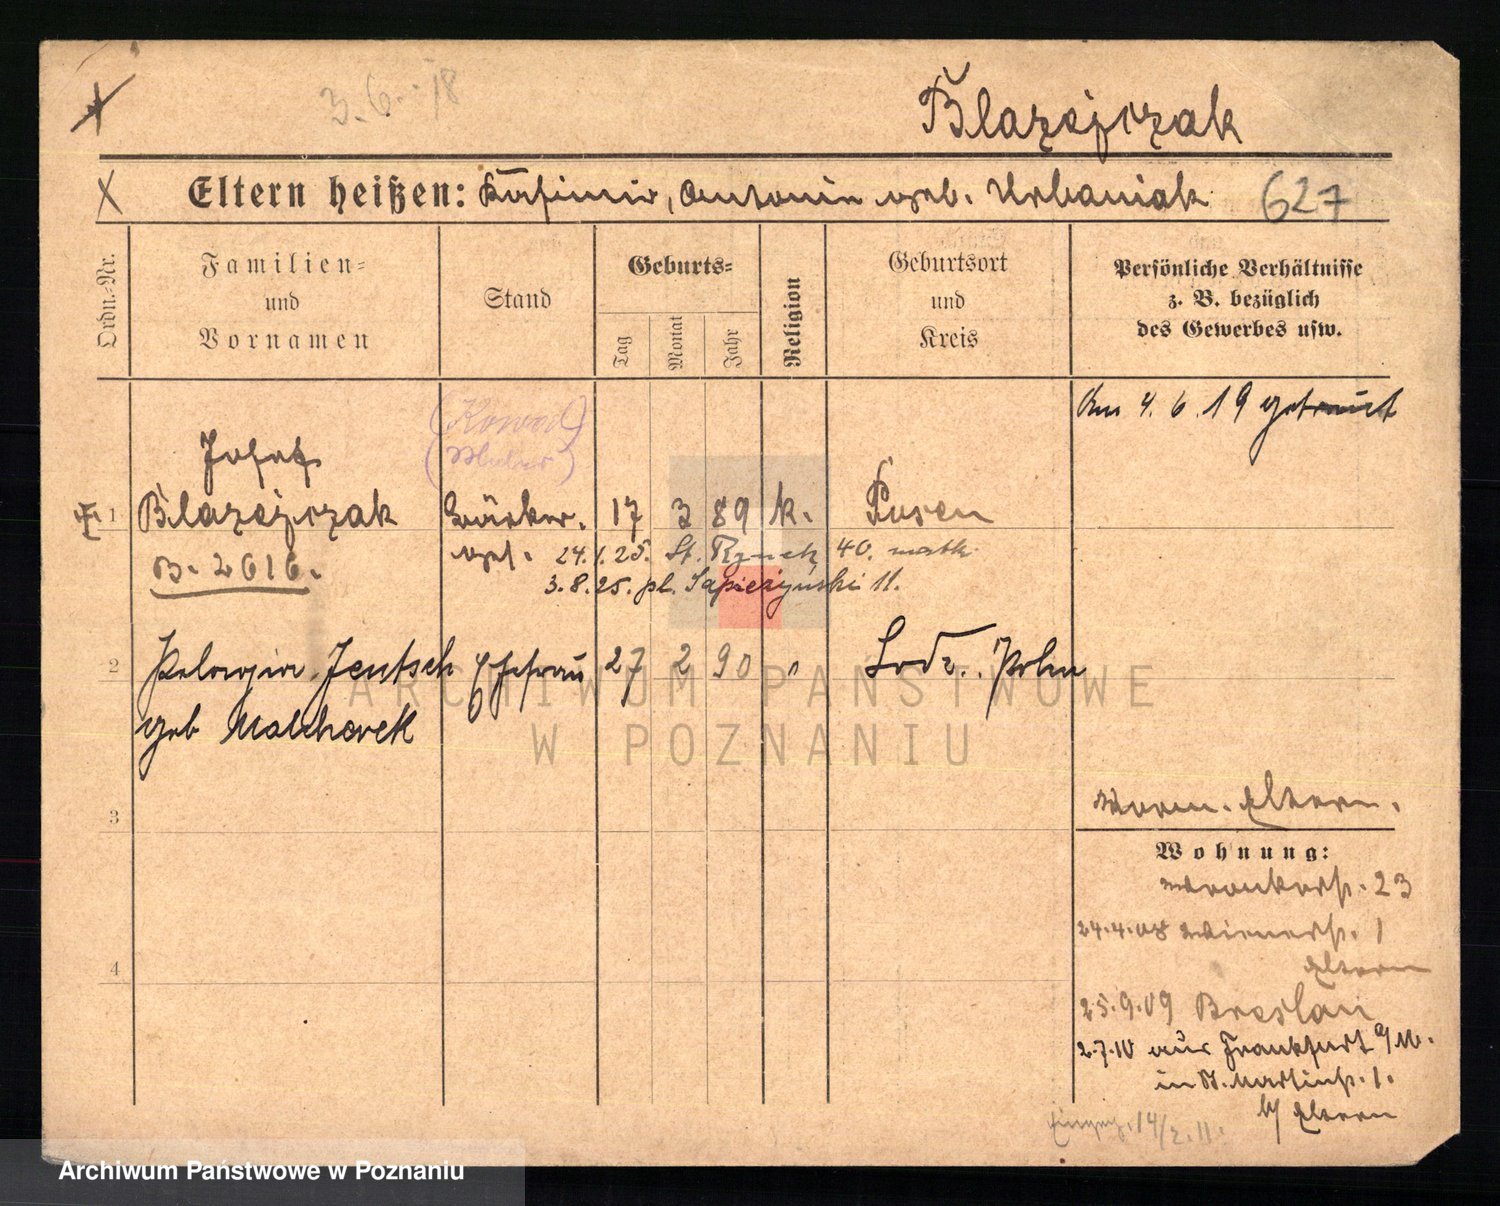 3.6.18
Blazejczak
Eltern heißen: Kasimir, Antonin geb. Urbaniak
627
Ordn.-Nr.
Familien-
und
Vornamen
Stand
Geburts-
Tag
Monat
Jahr
Religion
Geburtsort
und
Kreis
Persönliche Verhältnisse
z. B. bezüglich
des Gewerbes usw.
Am 4.6.19 getraut
Josef
1 Blazejczak Bäcker. 17 3 89 k. Posen
B. 2616. ges. 24.1.25. St. Rynek 40. matk.
3.8.25. pl. Sapieżyński 11.
2 Pelagia Jentsch Ehefrau 27 2 90 " Lodz. Polen
geb Malcherek
ARCHIWUM PAŃSTWOWE
W POZNANIU
3
Vorm. Eltern.
Wohnung:
Wronkerstr. 23
24.4.08 Wienerstr. 1
Eltern
4
25.9.09 Breslau
2.7.10 aus Frankfurt a/M.
in St. Martinstr. 1.
b/ Eltern
14/2.11.
Archiwum Państwowe w Poznaniu